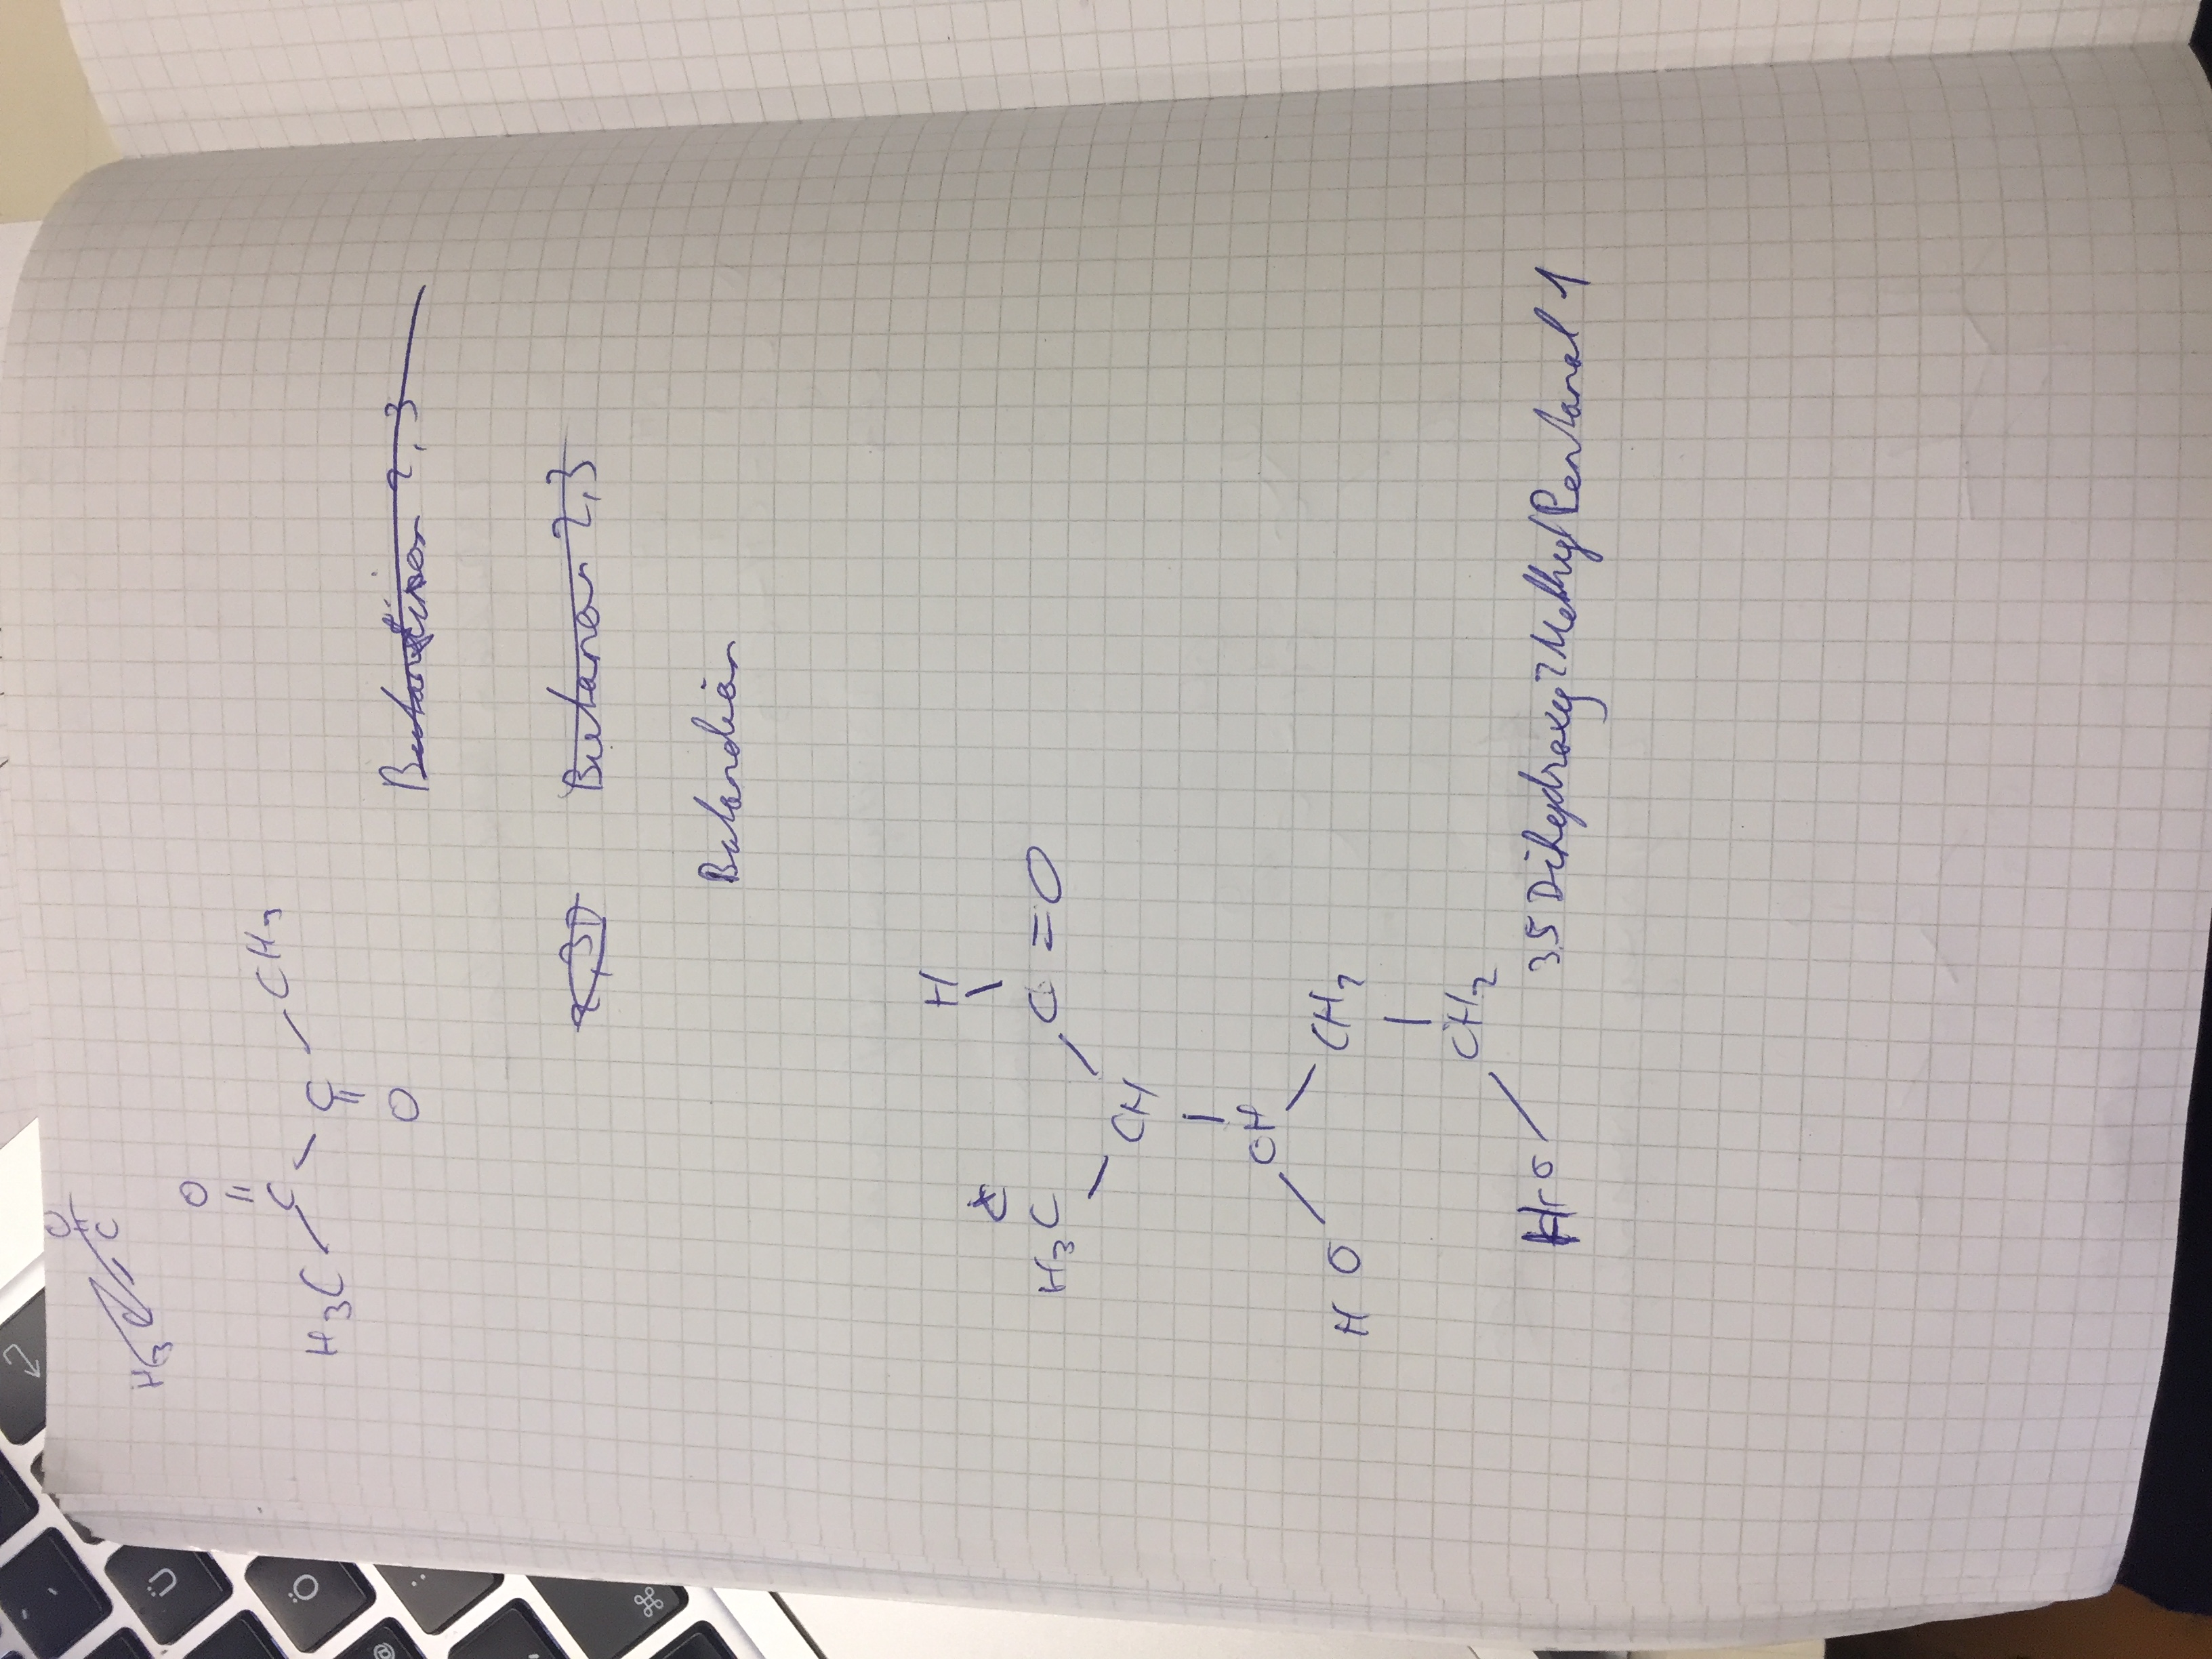 O
C
H3 C
O
||
C
H3C C CH3
||
O
2, 3
Butanon 2,3
Butandion
H
H3C C = O
CH
CH
H O CH2
CH2
HO
3 5 Dihydroxy 2 Methyl Pentanal 1
Ü
Ö
@
⌘